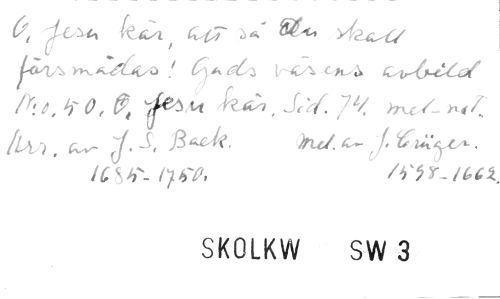 O, Jesu kär, att så Du skall
försmädas! Guds väsens avbild
N:o. 50. O, Jesu kär. Sid. 74. mel-not.
Arr. av J. S. Back. Mel. av J. Crüger.
1685-1750. 1598-1662.
SKOLKW SW 3